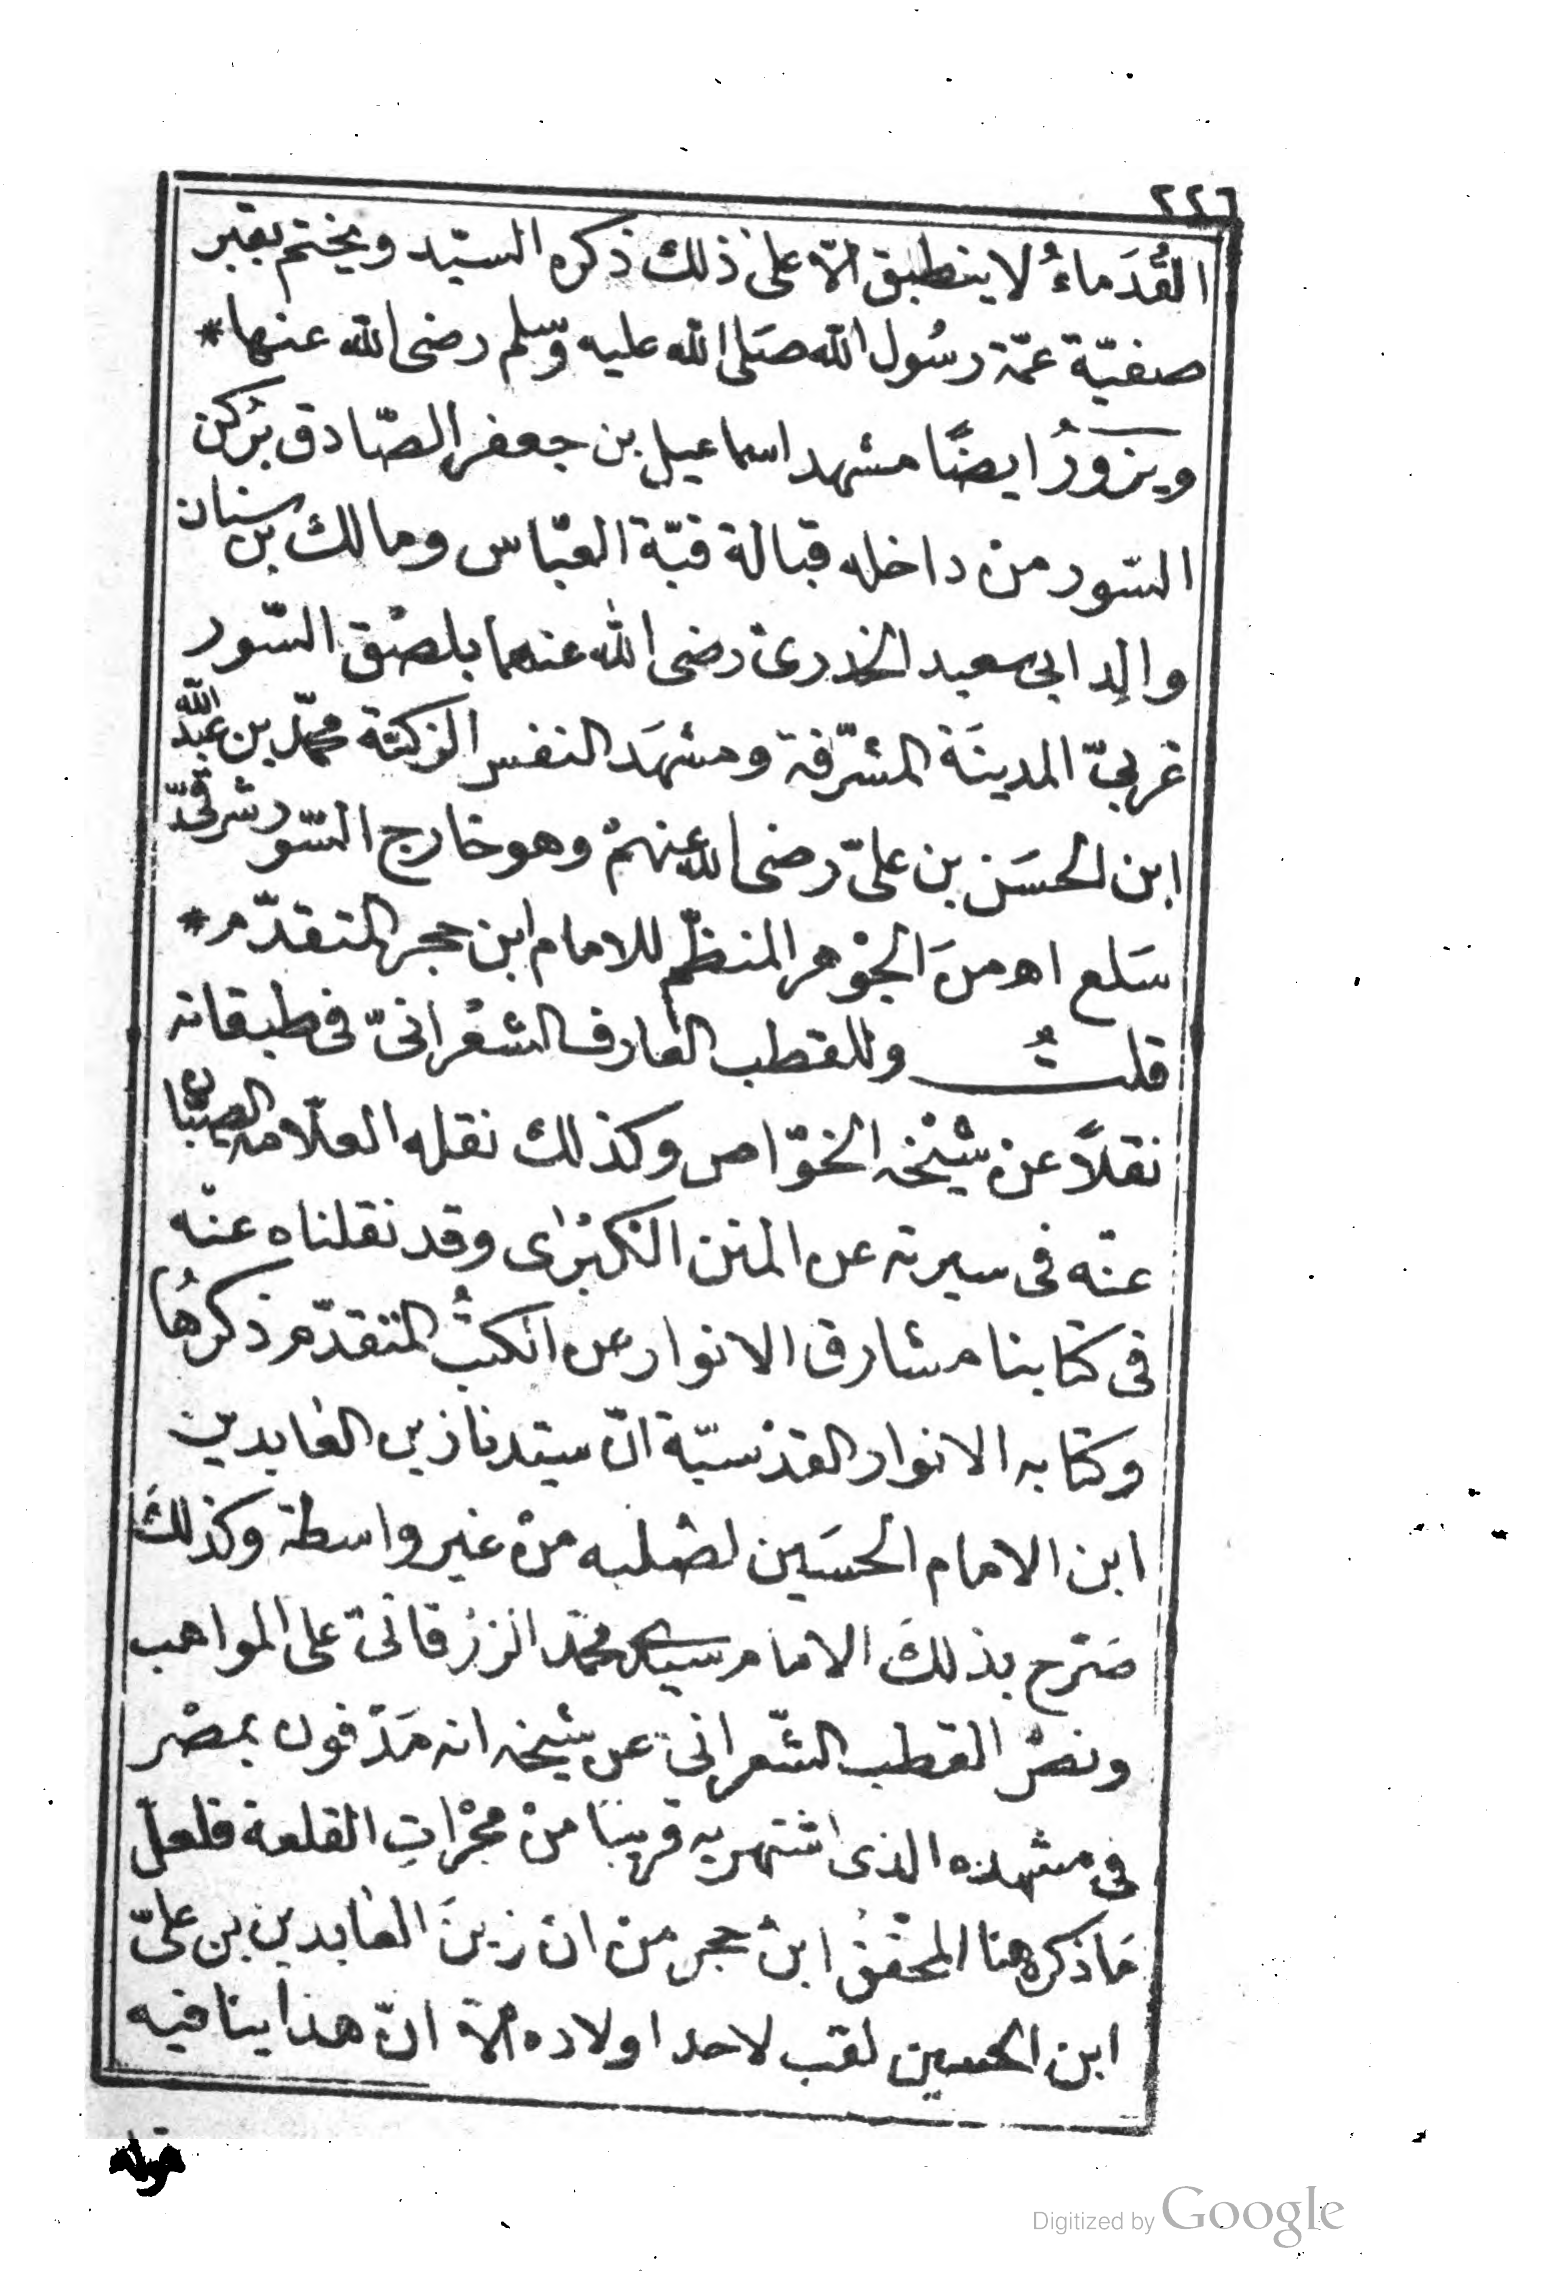 ٢٢٦
القُدَماءُ لا ينطبق الّا على ذلك ذكره السيّد ويختم بقبر
صفيّة عمّة رسُول الله صَلى الله عليه وسّلم رضى الله عنها *
ويزورُ ايضًا مشهد اسماعيل بن جعفر الصّادق بركن
السّور من داخله قبالة قبّة العبّاس ومالك بن سنان
والِد ابى سعيد الخدرىّ رضى الله عنهما بلصْق السّور
غربىّ المدينَة المشرّفة ومشهَد النفس الزكيّة محمّد بن عبد الله
ابن الحسَن بن علىّ رضى الله عنهمْ وهو خارج السّور شرقىّ
سَلع اه منَ الجوْهر المنظّم للامام ابن حجر المتقدّم *
قلتُ وللقطب العارف الشعْرانىّ فى طبقاته
نقلاً عن شيْخه الخوّاص وكذلك نقله العلّامة الصبّان
عنه فى سيرته عن المنن الكبْرى وقد نقلناه عنْه
فى كتابنا مشارق الانوار عن الكتبُ المتقدّم ذكرهَا
وكتابه الانوار القدْسيّة انّ سيّدنا زين العابدين
ابن الامام الحسَين لصُلبه منْ غير واسطة وكذلكَ
صَرّح بذلكَ الامام سيدى محمّد الزرْقانىّ على المواهب
ونصْ القطب الشّعرانى عن شيخه انه مَدْفون بمصْر
فى مشهده الذى اشتهر به قريبًا منْ مجْراتِ القلعة فلعلّ
مَا ذكره هنا المحقق ابنُ حجر منْ ان زينَ العابدين بن علىّ
ابن الحسين لقب لاحد اولاده الّا انّ هذا ينافيه
قوله
Digitized by Google